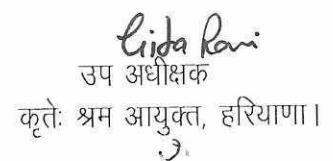 Gida Rani
उप अधीक्षक
कृतेः श्रम आयुक्त, हरियाणा।